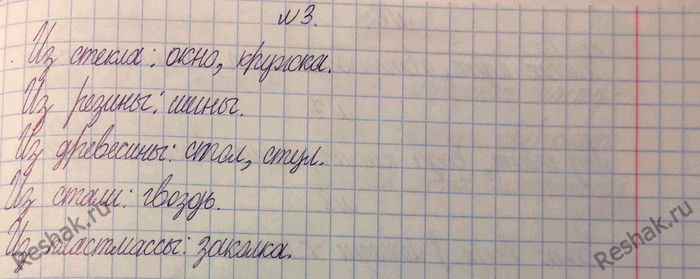 №3.
Из стекла: окно, кружка.
Из резины: шины.
Из древесины: стол, стул.
Из стали: гвоздь.
Из пластмассы: заколка.
Reshak.ru
Reshak.ru